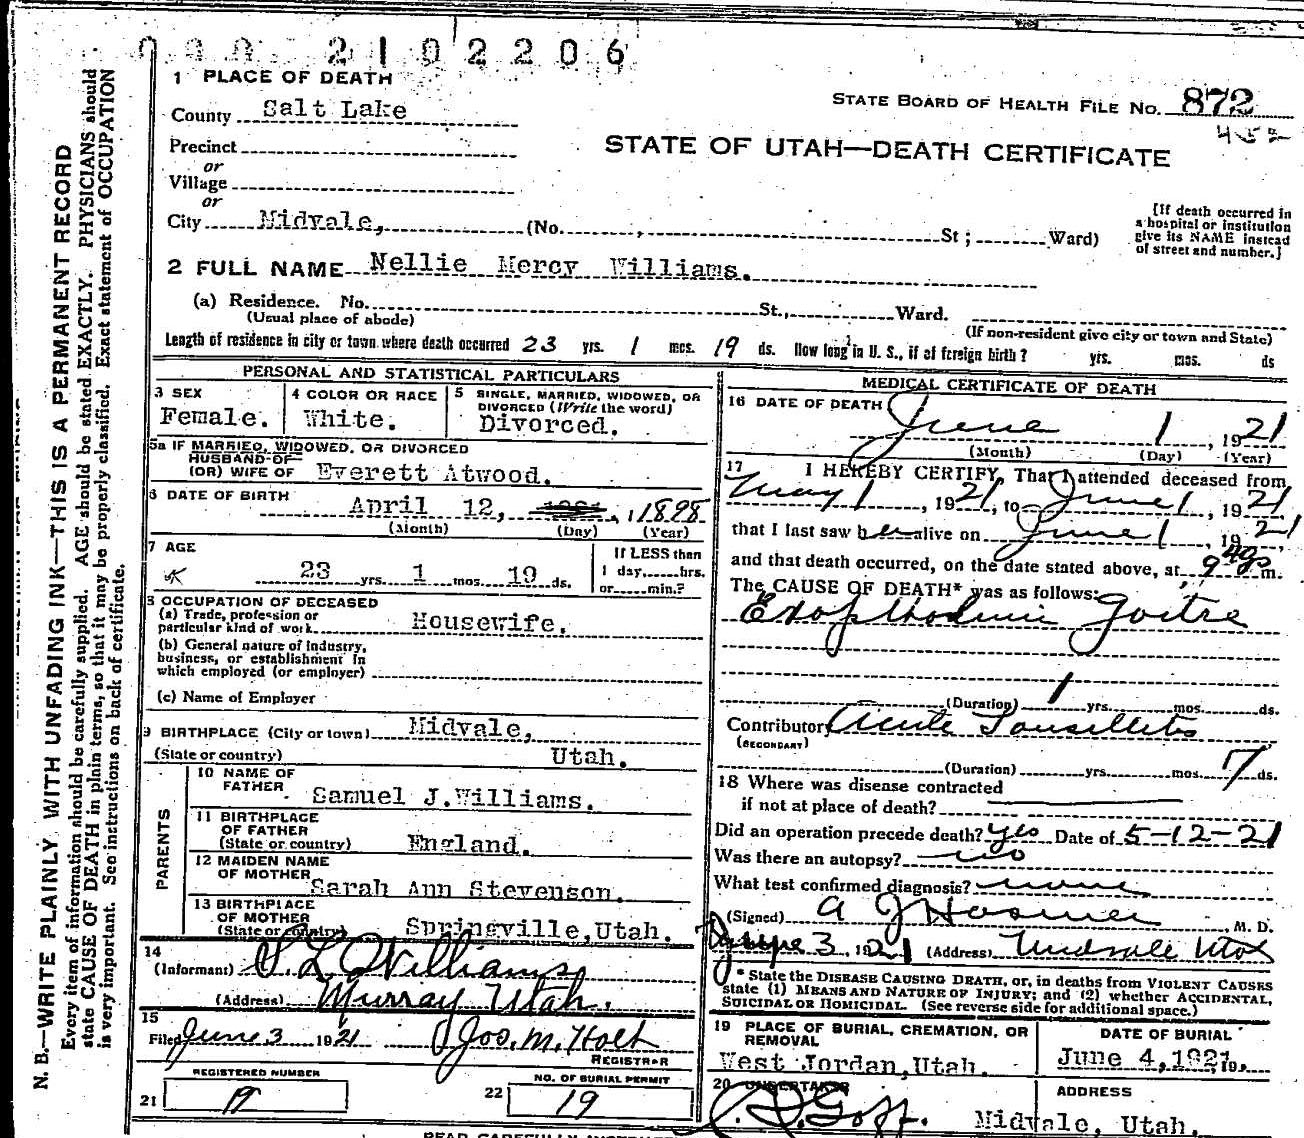 2102206
1 PLACE OF DEATH
STATE BOARD OF HEALTH FILE NO. 872
County Salt Lake
452
Precinct
STATE OF UTAH—DEATH CERTIFICATE
or
Village
or
City Midvale, (No. , St; Ward)
[If death occurred in
a hospital or institution
give its NAME instead
of street and number.]
2 FULL NAME Nellie Mercy Williams.
(a) Residence. No. St., Ward.
(Usual place of abode)
(If non-resident give city or town and State)
Length of residence in city or town where death occurred 23 yrs. 1 mos. 19 ds. How long in U. S., if of foreign birth? yrs. mos. ds
PERSONAL AND STATISTICAL PARTICULARS
3 SEX
Female.
4 COLOR OR RACE
White.
5 SINGLE, MARRIED, WIDOWED, OR
DIVORCED (Write the word)
Divorced.
5a IF MARRIED, WIDOWED, OR DIVORCED
HUSBAND OF
(OR) WIFE OF Everett Atwood.
6 DATE OF BIRTH
April 12, , 1898
(Month) (Day) (Year)
7 AGE
23 yrs. 1 mos. 19 ds.
If LESS than
1 day, hrs.
or min.?
8 OCCUPATION OF DECEASED
(a) Trade, profession or
particular kind of work Housewife.
(b) General nature of industry,
business, or establishment in
which employed (or employer)
(c) Name of Employer
9 BIRTHPLACE (City or town) Midvale,
(State or country) Utah.
PARENTS
10 NAME OF
FATHER
Samuel J.Williams.
11 BIRTHPLACE
OF FATHER
(State or country) England.
12 MAIDEN NAME
OF MOTHER
Sarah Ann Stevenson.
13 BIRTHPLACE
OF MOTHER
(State or country) Springville,Utah.
14
(Informant) S. L. Williams
(Address) Murray Utah.
15
Filed June 3 1921 Jos. M. Holt
REGISTRAR
REGISTERED NUMBER
21 19
NO. OF BURIAL PERMIT
22 19
MEDICAL CERTIFICATE OF DEATH
16 DATE OF DEATH
June 1, 1921
(Month) (Day) (Year)
17 I HEREBY CERTIFY, That I attended deceased from
May 1, 1921, to June 1, 1921
that I last saw her alive on June 1, 1921,
and that death occurred, on the date stated above, at 9 m.
The CAUSE OF DEATH* was as follows:
Exopthalmic Goitre
(Duration) 1 yrs. mos. ds.
Contributory Acute Tonsillitis
(SECONDARY)
(Duration) yrs. mos. 7 ds.
18 Where was disease contracted
if not at place of death?
Did an operation precede death? yes Date of 5-12-21
Was there an autopsy? no
What test confirmed diagnosis? none
(Signed) A J Hosmer M. D.
June 3, 1921 (Address) Midvale Utah
* State the DISEASE CAUSING DEATH, or, in deaths from VIOLENT CAUSES
state (1) MEANS AND NATURE OF INJURY; and (2) whether ACCIDENTAL,
SUICIDAL OR HOMICIDAL. (See reverse side for additional space.)
19 PLACE OF BURIAL, CREMATION, OR
REMOVAL
West Jordan,Utah.
DATE OF BURIAL
June 4,1921, 19
20 UNDERTAKER
Goff.
ADDRESS
Midvale, Utah.
N. B.—WRITE PLAINLY WITH UNFADING INK—THIS IS A PERMANENT RECORD
Every item of information should be carefully supplied. AGE should be stated EXACTLY. PHYSICIANS should
state CAUSE OF DEATH in plain terms, so that it may be properly classified. Exact statement of OCCUPATION
is very important. See instructions on back of certificate.